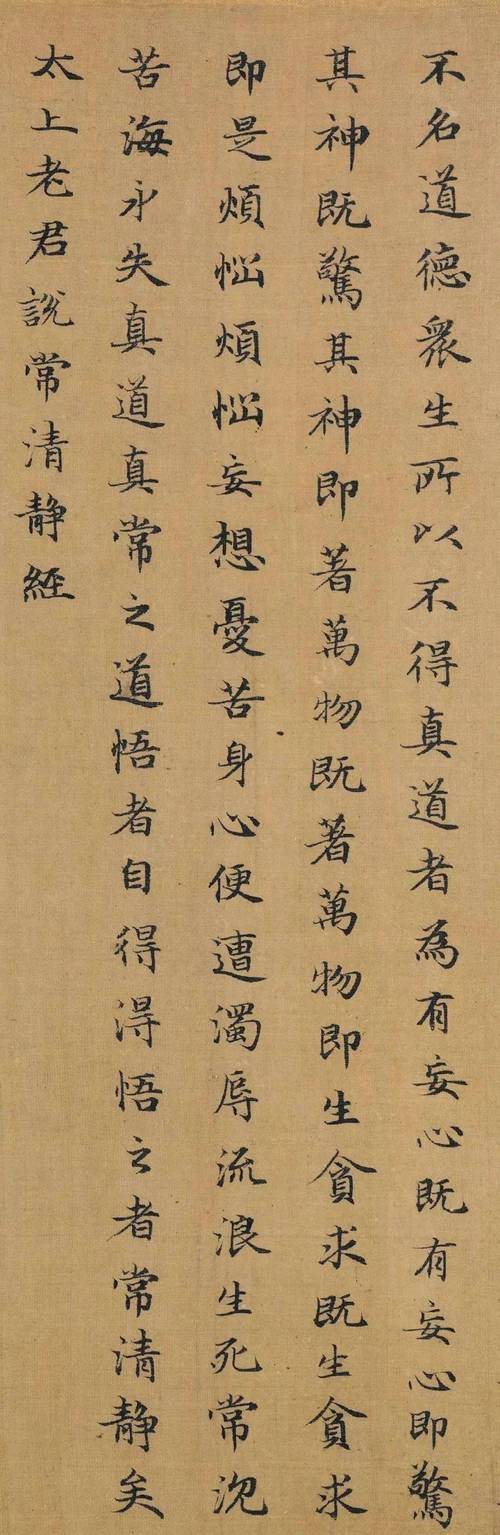 不名道德衆生所以不得真道者為有妄心既有妄心即驚
其神既驚其神即著萬物既著萬物即生貪求既生貪求
即是煩惱煩惱妄想憂苦身心便遭濁辱流浪生死常沈
苦海永失真道真常之道悟者自得得悟之者常清靜矣
太上老君說常清靜經